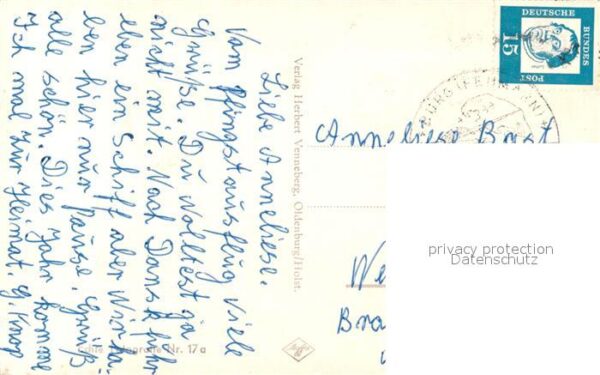 Liebe Anneliese.
Vom Pfingstausflug viele
Grüße. Du wolltest ja
nicht mit. Nach Dänk fuhr
eben ein Schiff aber wir ha-
ben hier nur Pause. Grüß
alle schön. Dies Jahr komme
ich mal zur Heimat. G. Knop
Verlag Herbert Venneberg, Oldenburg/Holst.
Nr. 17a
DEUTSCHE
BUNDES
POST
15
BURG (FEHMARN)
Anneliese
We
Bra
privacy protection
Datenschutz